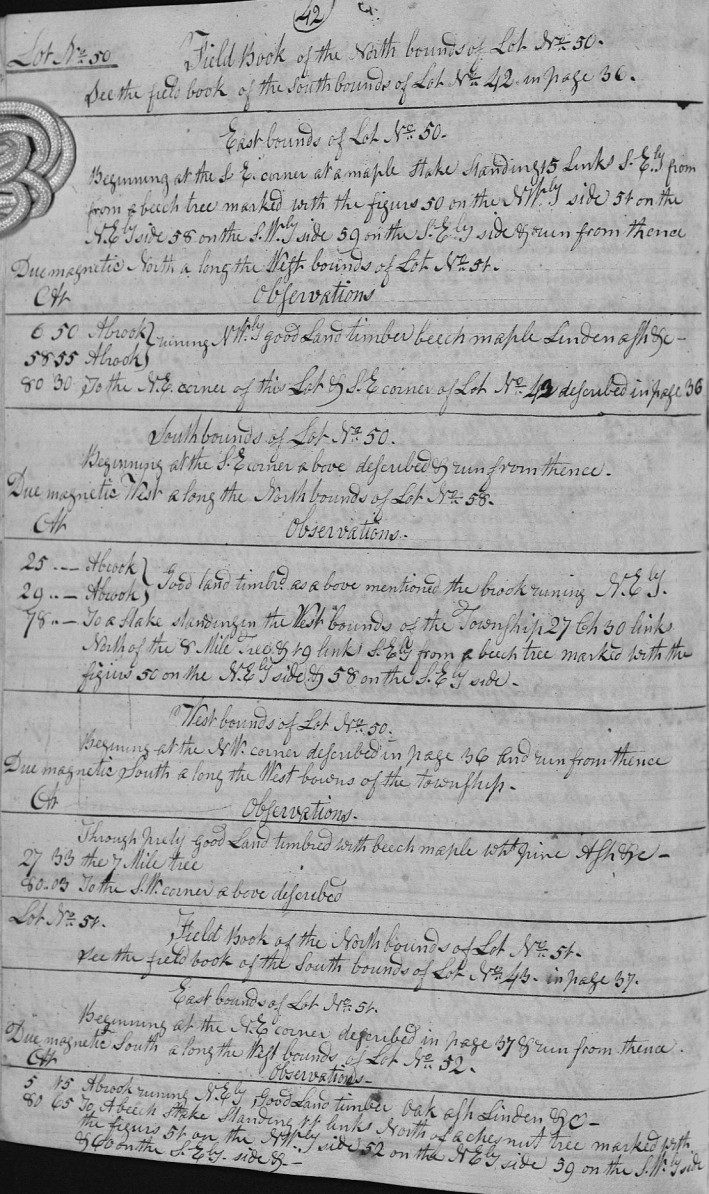 42
Lot No. 50
Field Book of the North bounds of Lot No. 50.
See the field book of the South bounds of Lot No. 42 in page 36.
East bounds of Lot No. 50.
Beginning at the S. E. corner at a maple Stake Standing 15 Links S. Ely from
from a beech tree marked with the figurs 50 on the N.Wly side 51 on the
N.Ely side 58 on the S.Wly side 59 on the S.Ely side & run from thence
Due magnetic North a long the West bounds of Lot No. 51.
Ch Observations
6 50 Abrook } runing N.Wly good Land timber beech maple Linden ash &c -
58 55 Abrook
80 30 To the N.E. corner of this Lot & S.E corner of Lot No. 42 described in page 36
South bounds of Lot No. 50.
Beginning at the S.E corner above described & run from thence.
Due magnetic West a long the North bounds of Lot No. 58.
Ch Observations.
25 .-- Abrook } Good land timbrd. as above mentioned the brook runing N.Ely.
29 .. - Abrook
78 .. - To a Stake standing in the West bounds of the Township 27 Ch 30 links
North of the 8 Mile Tree & 19 links S.Ely from a beech tree marked with the
figurs 50 on the N.Ely side & 58 on the S.Ely side -
West bounds of Lot No. 50.
Begining at the N.W. corner described in page 36 and run from thence
Due magnetic South a long the West bowns of the township.
Ch Observations.
Through prety good Land timbred with beech maple Wht pine Ash &c -
27 33 the 7 Mile tree
80-03 To the S.W. corner above described
Lot No. 51. Field Book of the North bounds of Lot No. 51.
See the field book of the South bounds of Lot No. 43. in page 37.
East bounds of Lot No. 51.
Beginning at the N.E corner described in page 37 & run from thence.
Due magnetic South a long the West bounds of Lot No. 52.
Ch Observations -
5 45 Abrook runing N.Ely good Land timber, Oak ash Linden &c -
80 65 To A beech Stake Standing 11 links North of a chesnut tree marked with
the figurs 51 on the N.Wly side 52 on the N.Ely side 59 on the S.Wly side
& 60 on the S.Ely side & -